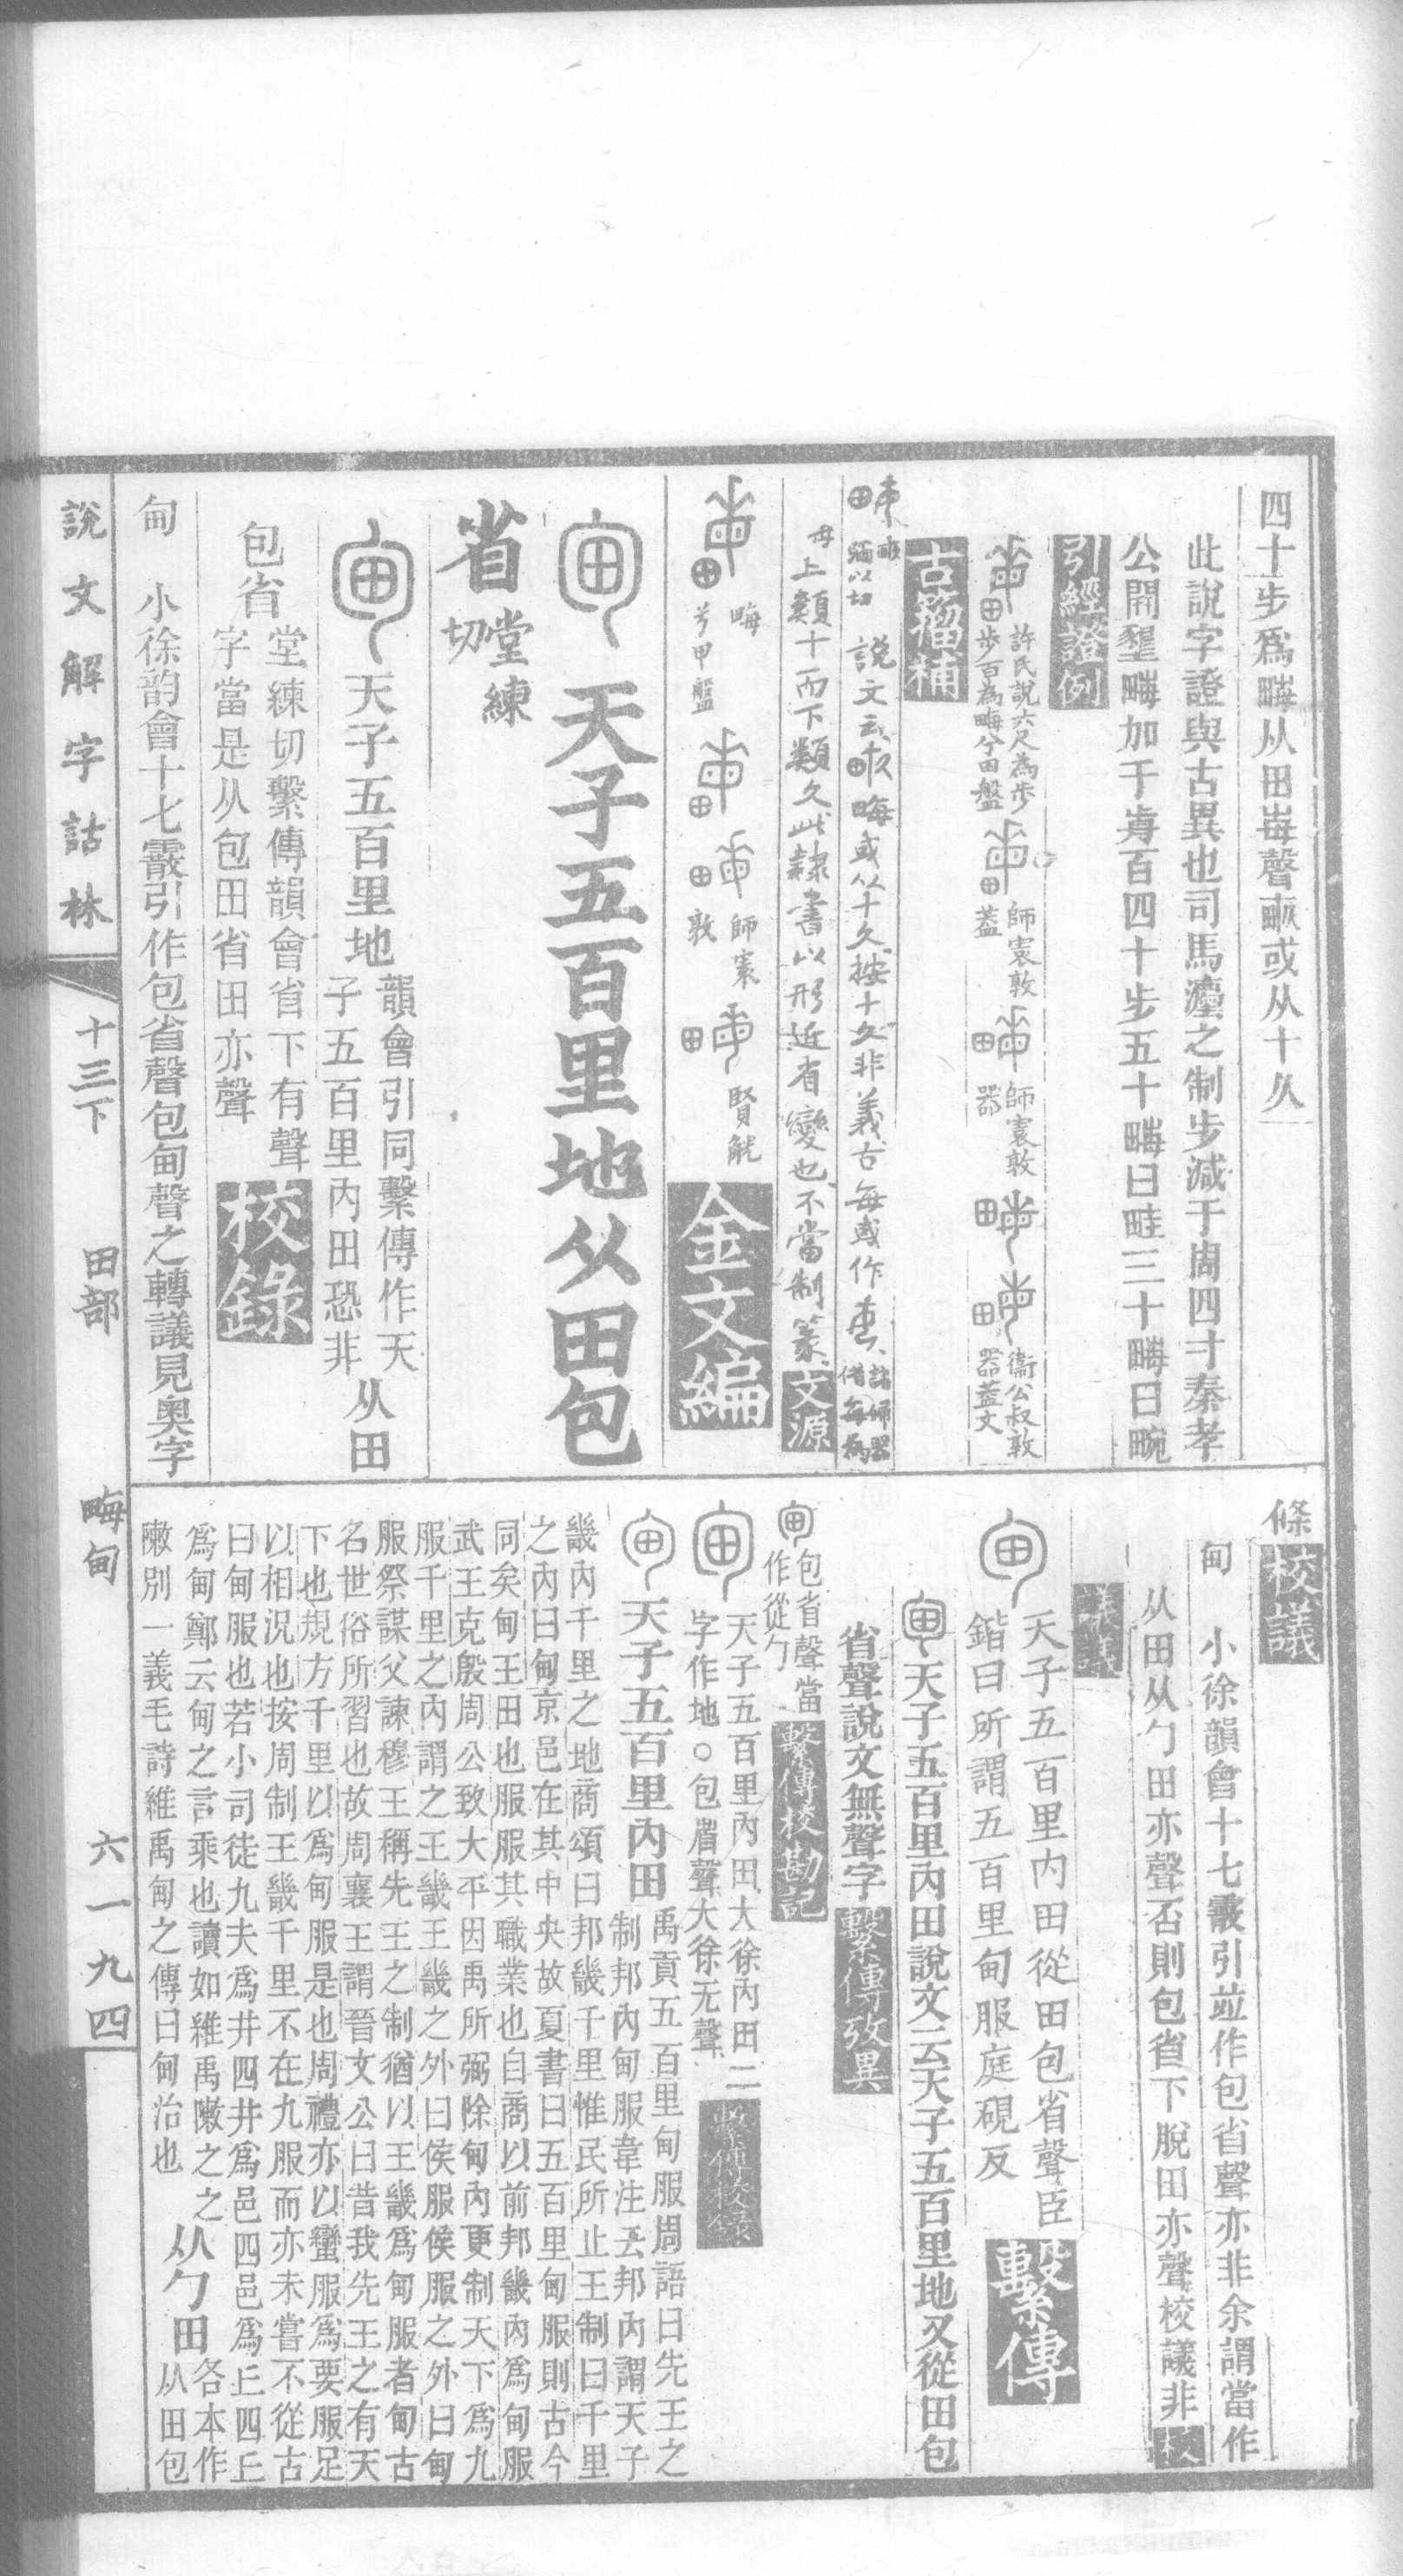 四十步爲畮从田每聲畞或从十久
此說字證與古異也司馬灋之制步減于周四寸秦孝
公開壟畮加于歬百四十步五十畮曰畦三十畮曰畹
引經證例
許氏說六尺為步
步百為畮兮田盤
師寰敦
蓋
師寰敦
器
衞公叔敦
器蓋文
古籀補
畞
說文云畞畮或从十久按十久非義古每或作
諸婦器
借每為
每上類十而下類久此隸書以形近省變也不當制篆
文源
畮
兮甲盤
師寰
敦
賢觥
金文編
甸 天子五百里地从田包
省 堂練
切
甸 天子五百里地
韻會引同繫傳作天
子五百里內田恐非
从田
包省
堂練切繫傳韻會省下有聲
字當是从包田省田亦聲
校錄
甸 小徐韵會十七霰引作包省聲包甸聲之轉議見奥字
說文解字詁林 十三下 田部 畮甸 六一九四
條
校議
甸 小徐韻會十七霰引竝作包省聲亦非余謂當作
从田从勹田亦聲否則包省下脫田亦聲校議非
校
議議
甸 天子五百里內田從田包省聲臣
鍇曰所謂五百里甸服庭硯反
繫傳
甸 天子五百里內田說文云天子五百里地又從田包
省聲說文無聲字
繫傳攷異
甸 包省聲當
作從勹
繫傳校勘記
甸 天子五百里內田大徐內田二
字作地○包省聲大徐无聲
繫傳校錄
甸 天子五百里內田
禹貢五百里甸服周語曰先王之
制邦內甸服韋注云邦內謂天子
畿內千里之地商頌曰邦畿千里惟民所止王制曰千里
之內曰甸京邑在其中央故夏書曰五百里甸服則古今
同矣甸王田也服服其職業也自商以前邦畿內爲甸服
武王克殷周公致大平因禹所弼除甸內更制天下爲九
服千里之內謂之王畿王畿之外曰侯服侯服之外曰甸
服祭謀父諫穆王稱先王之制猶以王畿爲甸服者甸古
名世俗所習也故周襄王謂晉文公曰昔我先王之有天
下也規方千里以爲甸服是也周禮亦以蠻服爲要服足
以相況也按周制王畿千里不在九服而亦未嘗不從古
曰甸服也若小司徒九夫爲井四井爲邑四邑爲丘四丘
爲甸鄭云甸之言乘也讀如維禹敶之之
敶別一義毛詩維禹甸之傳曰甸治也
从勹田
各本作
从田包